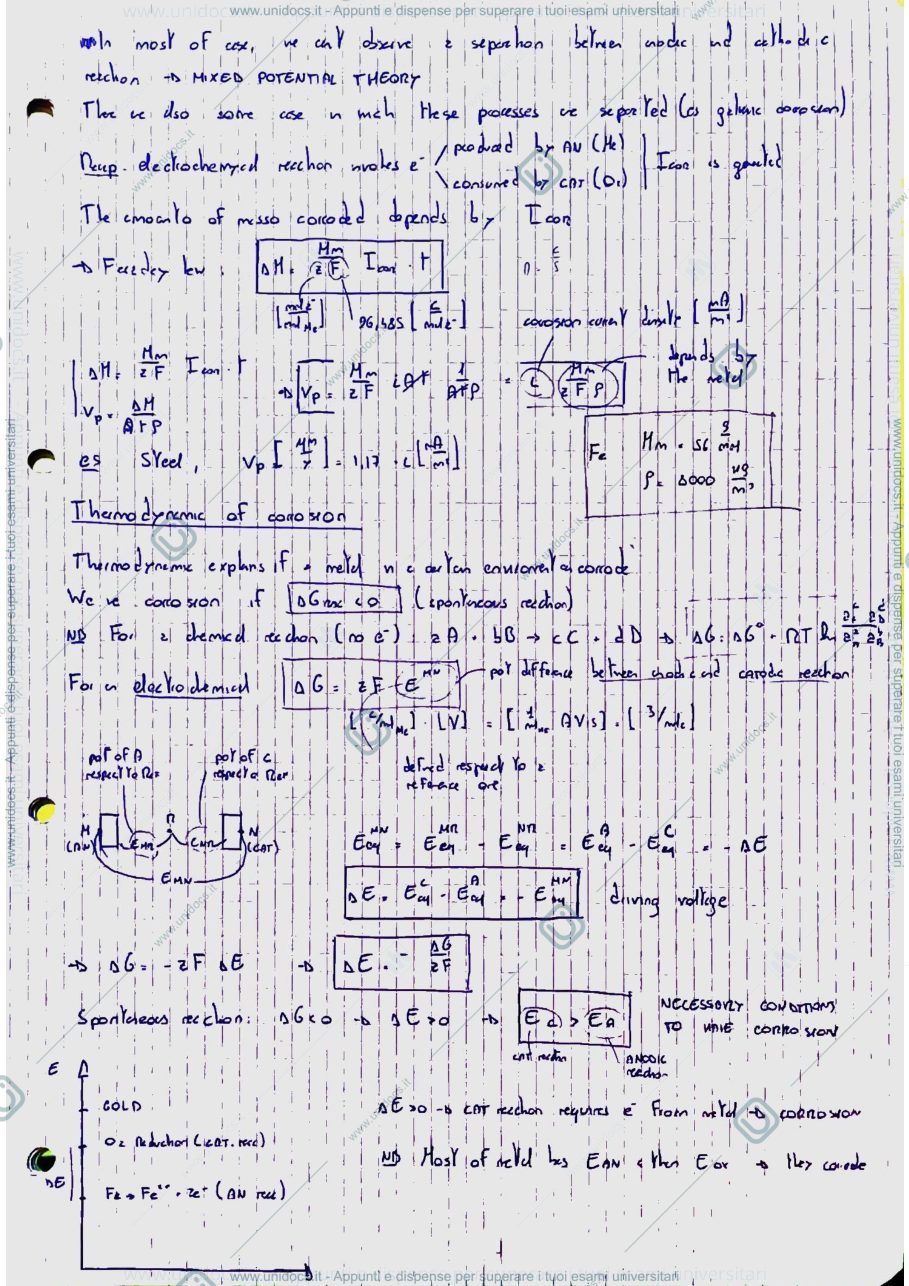 www.unidocs.it - Appunti e dispense per superare i tuoi esami universitari
In most of case, we can't observe a separation between anodic and cathodic
reaction → MIXED POTENTIAL THEORY
There are also some case in which these processes are separated (as galvanic corrosion)
Recap. electrochemical reaction involves e⁻ / produced by AN (Me) | I corr is generated
\ consumed by CAT (O₂)
The amount of mass corroded depends by I corr
→ Faraday law: ΔM = Mm/zF I corr · t
[mol e⁻/mol Me] 96,485 [C/mol e⁻] corrosion current density [mA/m²]
ΔM = Mm/zF I corr · t → Vp = Mm/zF i A t 1/Atρ = i Mm/zFρ depends by the metal
Vp = ΔM/Atρ
es Steel, Vp [μm/y] = 1,17 · i [mA/m²]
Fe Mm = 56 g/mol
ρ = 8000 kg/m³
Thermodynamic of corrosion
Thermodynamic explains if a metal in a certain environment corrode
We have corrosion if ΔG reac < 0 (spontaneous reaction)
NB For a chemical reaction (no e⁻) aA + bB → cC + dD → ΔG = ΔG° + RT ln
For an electrochemical ΔG = zF E^MN pot difference between anodic and catodic reaction
[C/mol Me] · [V] = [1/mol Me A V s] = [J/mol]
pot of A respect to Ref
pot of C respect to Ref
defined respect to a
reference one
M (AN) E MR R E NR N (CAT)
E MN
E eq^MN = E eq^MR - E eq^NR = E eq^A - E eq^C = - ΔE
ΔE = E eq^C - E eq^A = - E eq^MN driving voltage
→ ΔG = - zF ΔE → ΔE = - ΔG/zF
Spontaneous reaction: ΔG<0 → ΔE>0 → E c > E A NECESSARY CONDITIONS
TO HAVE CORROSION
CAT reaction ANODIC reaction
E
GOLD
O₂ Reduction (CAT. reac)
ΔE
Fe → Fe²⁺ + 2e⁻ (AN reac)
ΔE>0 → CAT reaction requires e⁻ from metal → CORROSION
NB Most of metal has E AN < then E ox → they corrode
www.unidocs.it - Appunti e dispense per superare i tuoi esami universitari